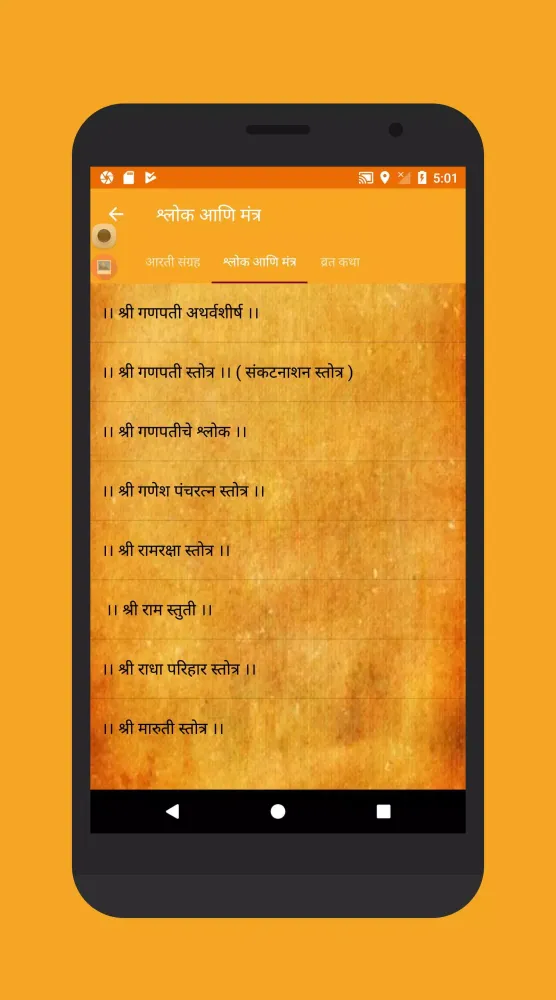 5:01
श्लोक आणि मंत्र
आरती संग्रह श्लोक आणि मंत्र व्रत कथा
।। श्री गणपती अथर्वशीर्ष ।।
।। श्री गणपती स्तोत्र ।। ( संकटनाशन स्तोत्र )
।। श्री गणपतीचे श्लोक ।।
।। श्री गणेश पंचरत्न स्तोत्र ।।
।। श्री रामरक्षा स्तोत्र ।।
।। श्री राम स्तुती ।।
।। श्री राधा परिहार स्तोत्र ।।
।। श्री मारुती स्तोत्र ।।